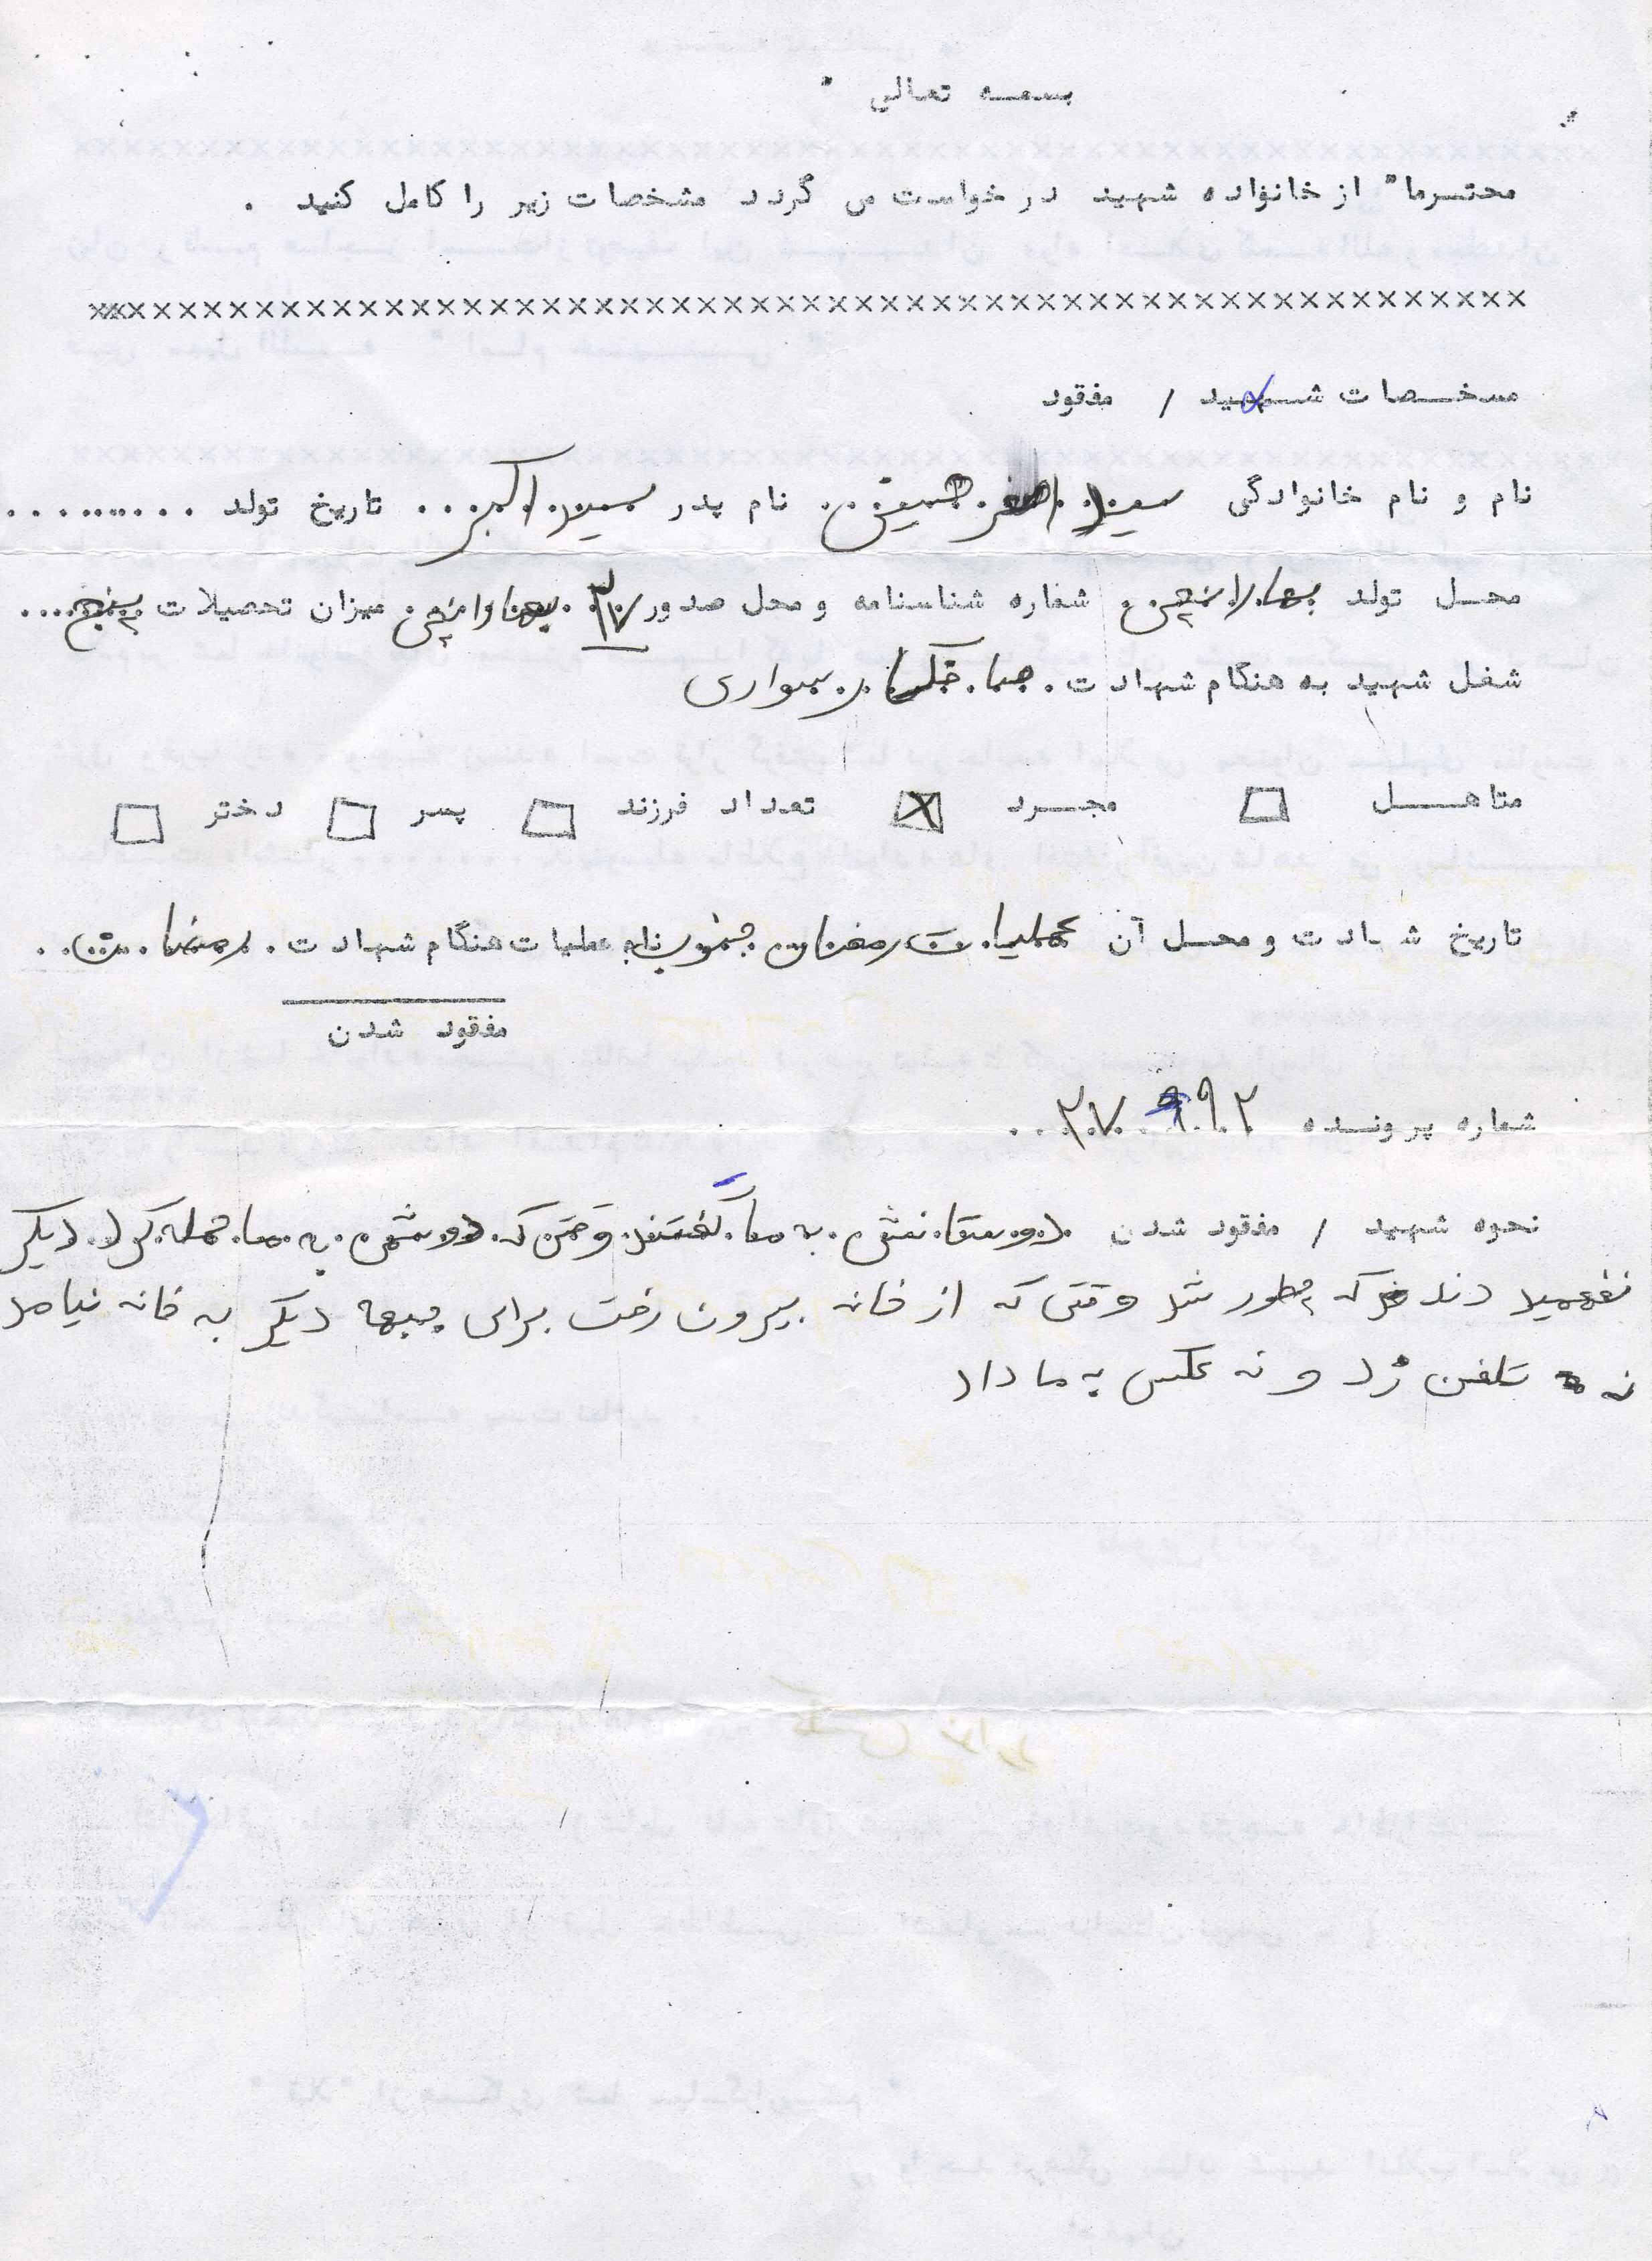 بسمه تعالی
محترما" از خانواده شهید درخواست می گردد مشخصات زیر را کامل کنید .
××××××××××××××××××××××××××××××××××××××××××××××××××××××
مشخصات شهید / مفقود
نام و نام خانوادگی سید اصغر حسینی نام پدر سید اکبر ... تاریخ تولد ..........
محل تولد شماره شناسنامه و محل صدور ۳۷ میزان تحصیلات پنج ....
شغل شهید به هنگام شهادت . سواری
متاهل □ مجرد ☒ تعداد فرزند □ پسر □ دختر □
تاریخ شهادت و محل آن عملیات رمضان جنوب نام عملیات هنگام شهادت . رمضان ..
مفقود شدن
شماره پرونده ۳۷۰۹۹۲ ...
نحوه شهید / مفقود شدن دوستانش به ما گفتند وقتی که دوشمن به ما حمله کرد دیگر
نفهمیدند که چطور شد وقتی که از خانه بیرون رفت برای جبهه دیگر به خانه نیامد
نه تلفن زد و نه عکس به ما داد